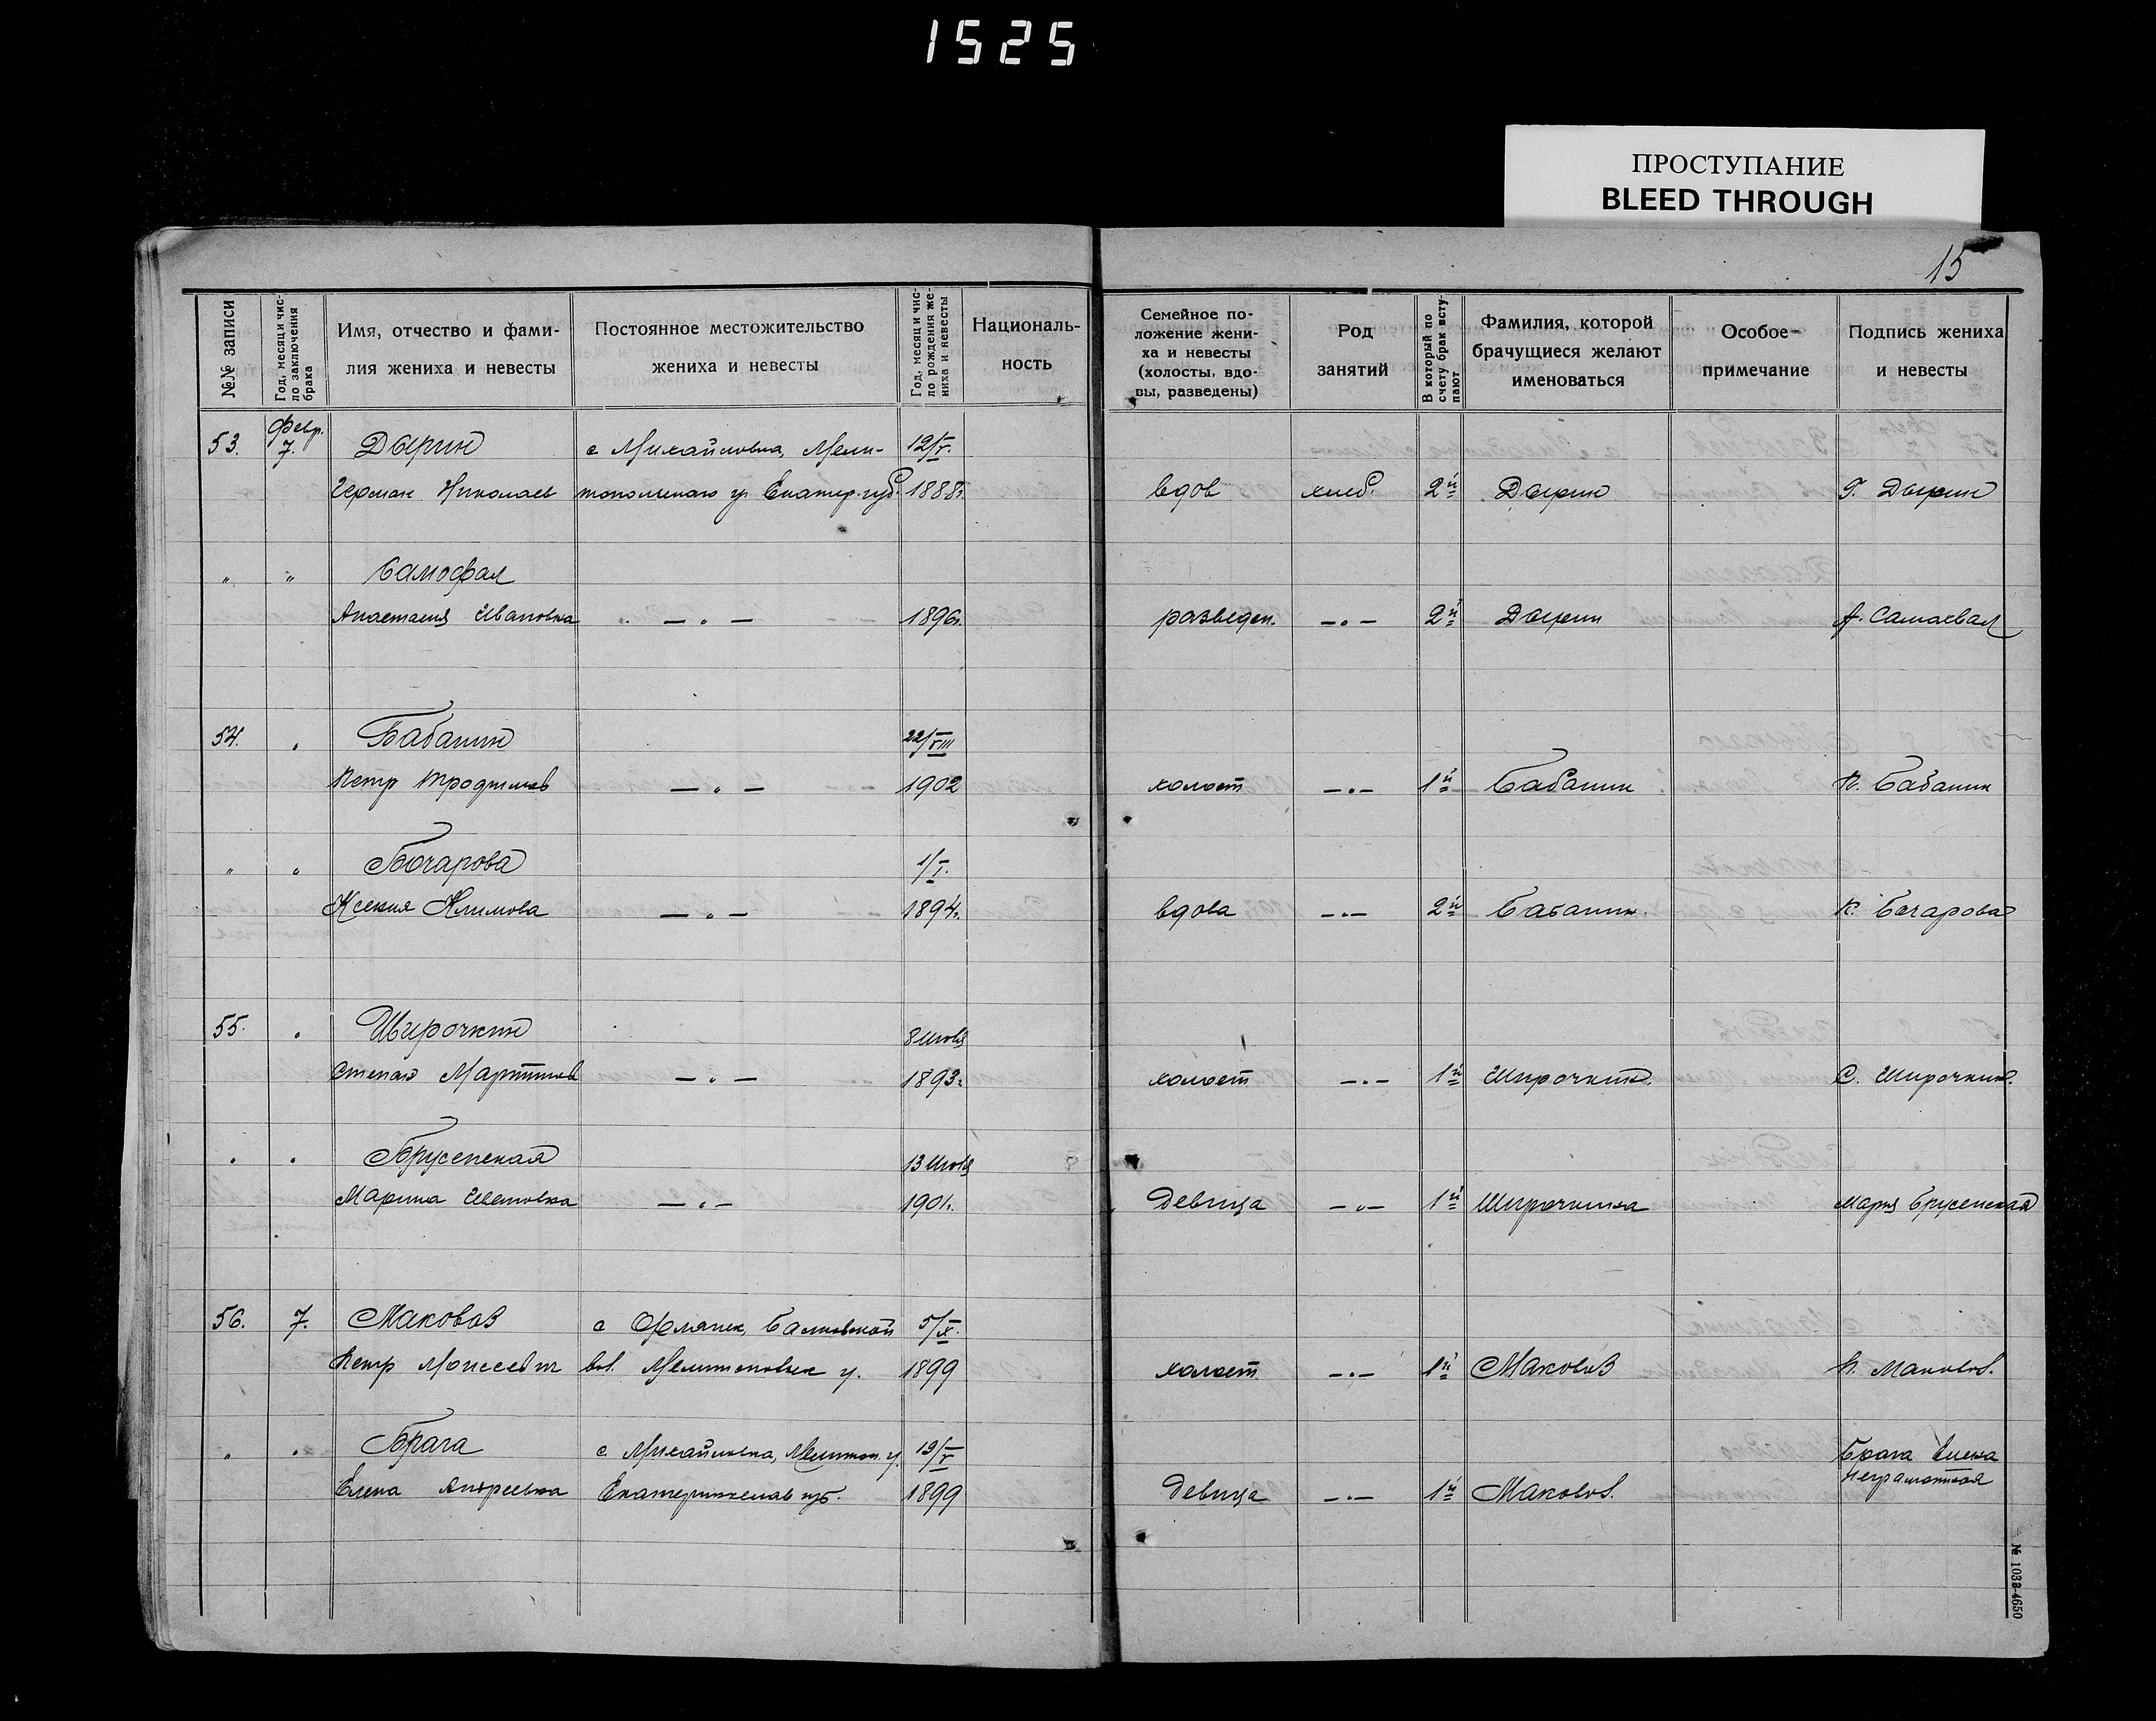 1525
ПРОСТУПАНИЕ
BLEED THROUGH
15
№№ записи
Год, месяц и чис-
ло заключения
брака
Имя, отчество и фами-
лия жениха и невесты
Постоянное местожительство
жениха и невесты
Год, месяц и чис-
ло рождения же-
ниха и невесты
Националь-
ность
Семейное по-
ложение жени-
ха и невесты
(холосты, вдо-
вы, разведены)
Род
занятий
В который по
счету брак всту-
пают
Фамилия, которой
брачущиеся желают
именоваться
Особое
примечание
Подпись жениха
и невесты
53. Февр. 7. Дырин с Михайловка, Мели- 12/V.
Герман Николаев топольского у Екатер. губ. 1888г. вдов хлеб. 2й Дырин Г. Дырин
" " Самофал
Анастасия Ивановна — " — 1896г. разведен. — " — 2й Дырин А. Самофал
54. " Бабанин 22/VIII
Петр — " — 1902 холост — " — 1й Бабанин П. Бабанин
" " Бочарова 1/I.
Ксения Климова — " — 1894г. вдова — " — 2й Бабанин. К. Бочарова
55. " Широчкин 8 Июля
Степан Мартинов — " — 1893г. холост — " — 1й Широчкин. С. Широчкин.
" " Брусенская 13 Июля
Марина — " — 1901г. девица — " — 1й Широчкина Мария Брусенская
56. 7. Маковоз с Орлянск, Балковской 5/X.
Петр Моисеевич вол. у. 1899 холост — " — 1й Маковоз П. Маковоз.
" " Брага с. Михайловка, Мелитоп. у. 19/V Брага Елена
Елена Андреевна Екатеринослав губ. 1899 девица — " — 1й Маковоз. неграмотная
№ 1033-4650